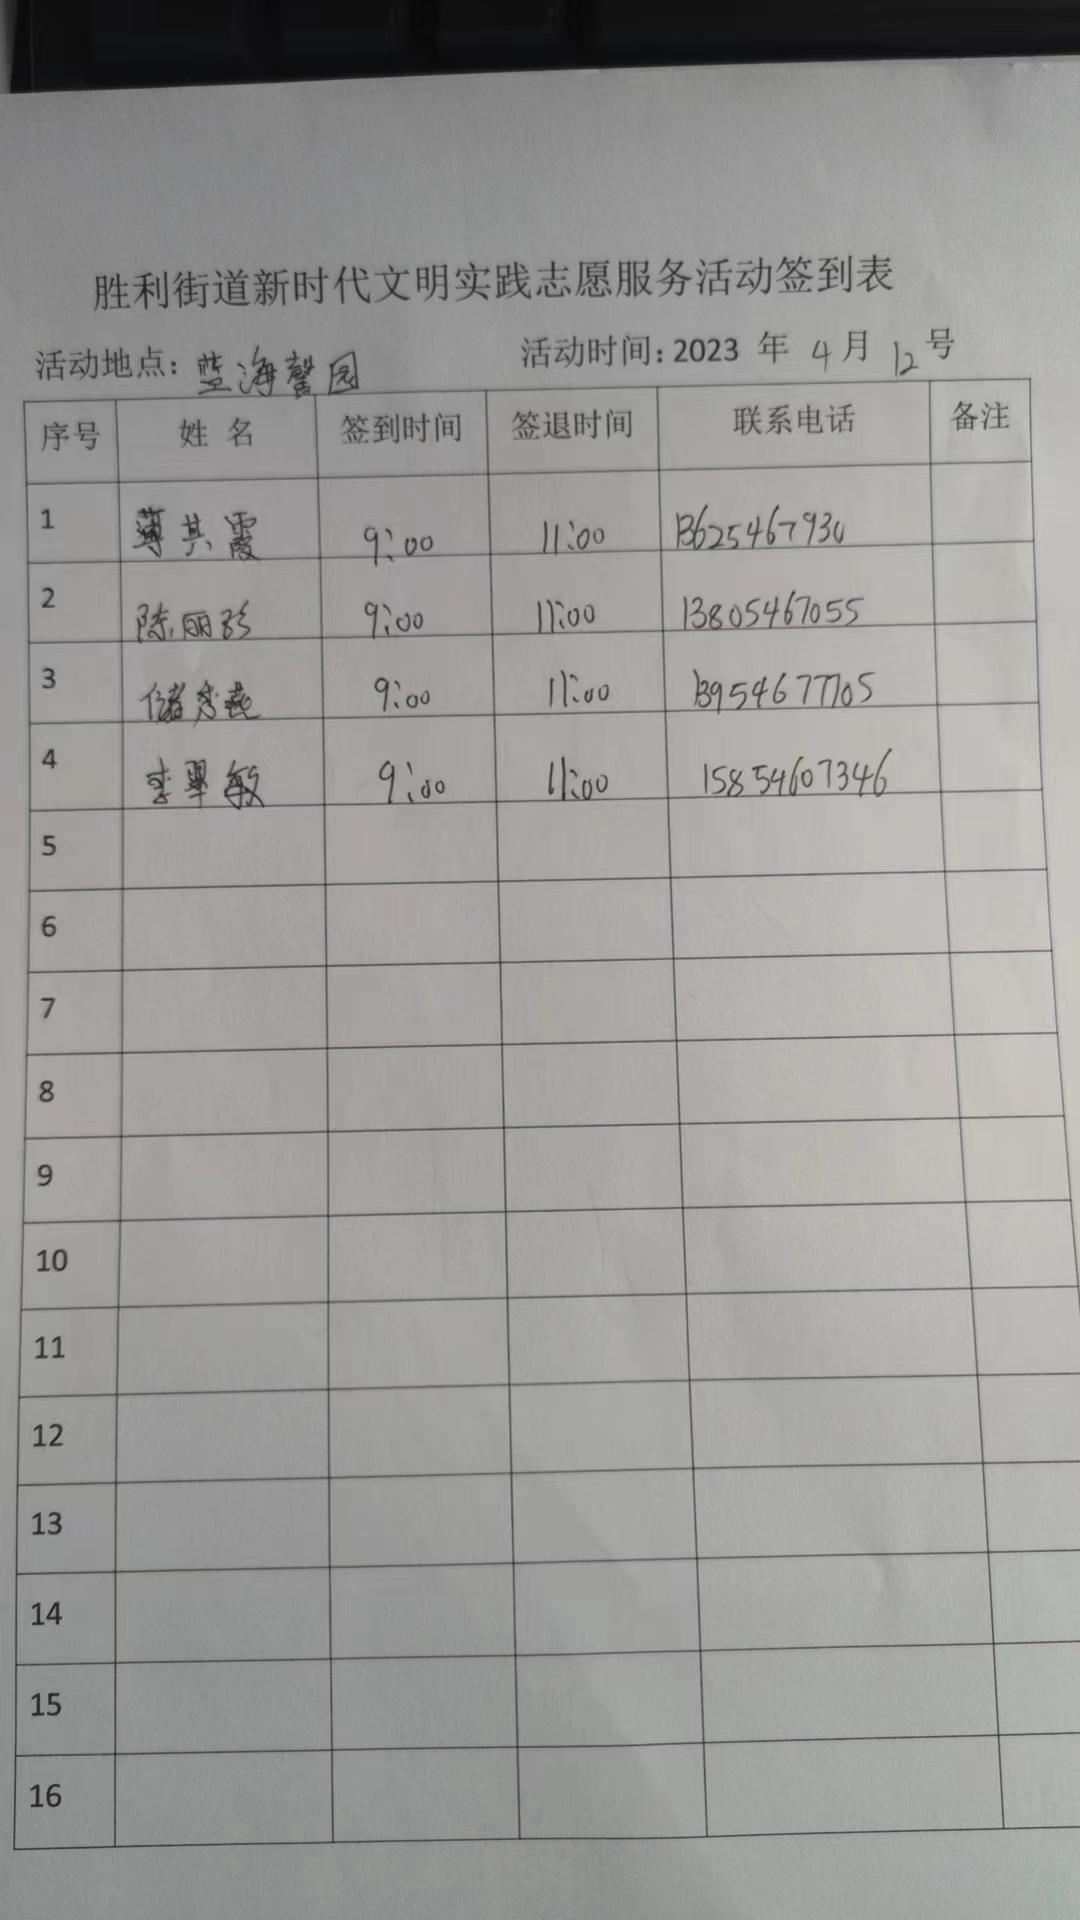 胜利街道新时代文明实践志愿服务活动签到表
活动地点: 蓝海馨园 活动时间: 2023 年 4 月 12 号
序号 姓名 签到时间 签退时间 联系电话 备注
1 薄其霞 9:00 11:00 13625467930
2 陈丽珍 9:00 11:00 13805467055
3 储秀燕 9:00 11:00 13954677705
4 李翠敏 9:00 11:00 15854607346
5
6
7
8
9
10
11
12
13
14
15
16